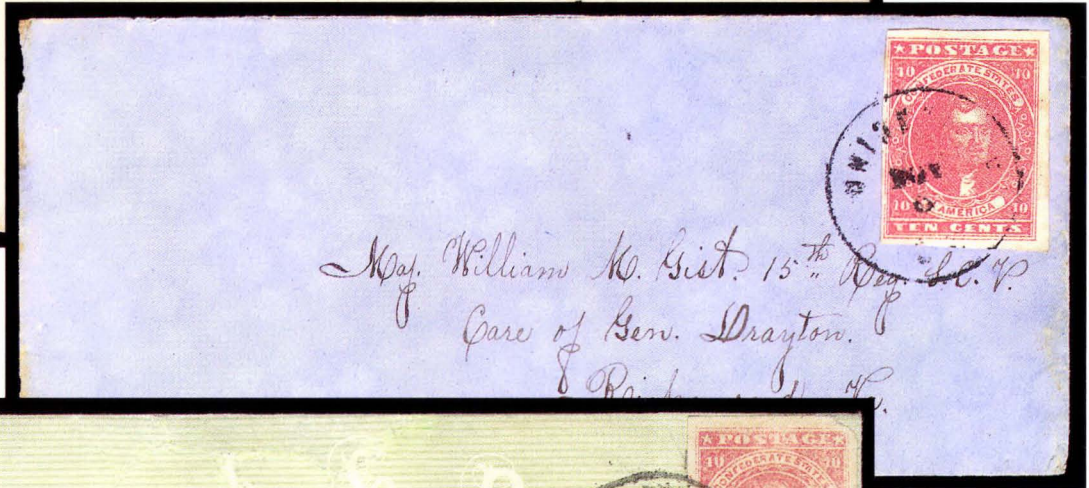 ★POSTAGE★
10 CONFEDERATE STATES 10
10 AMERICA 10
TEN CENTS
Maj. William M. Gist. 15th Reg. S.C.V.
Care of Gen. Drayton.
★POSTAGE★
10 CONFEDERATE STATES 10